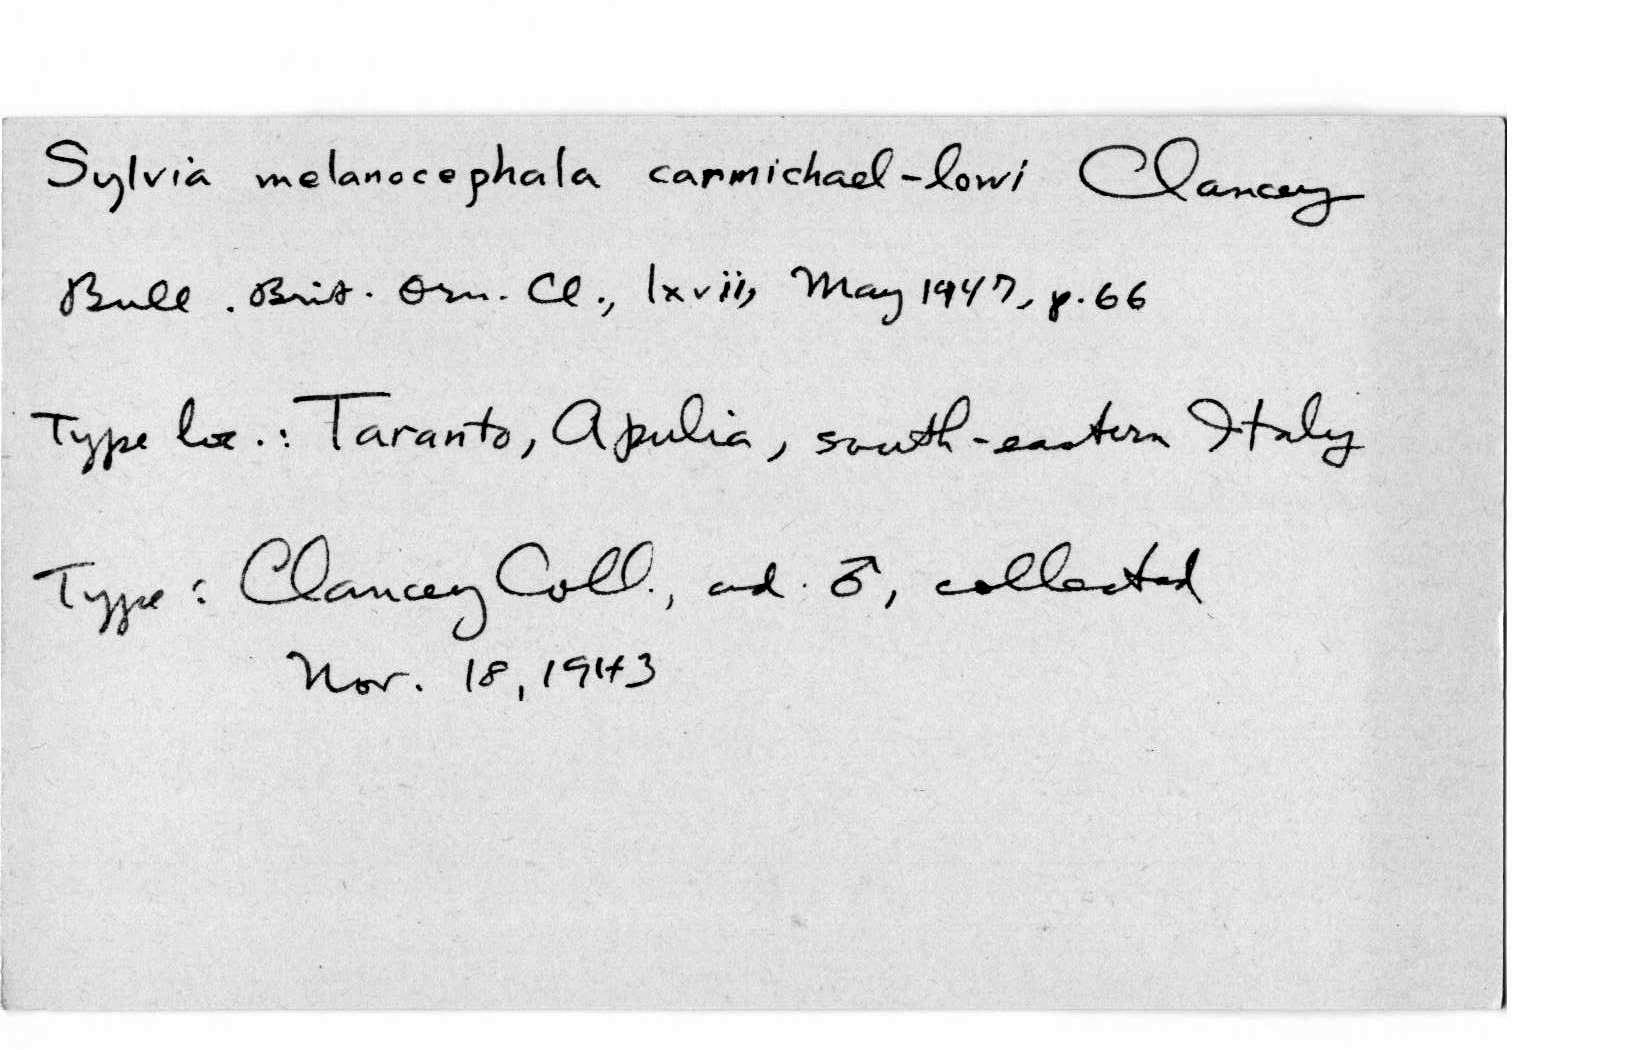 Sylvia melanocephala carmichael-lowi Clancey
Bull. Brit. Orn. Cl., lxvii, May 1947, p.66
Type loc.: Taranto, Apulia, south-eastern Italy
Type: Clancey Coll., ad. ♂, collected
Nov. 18, 1943